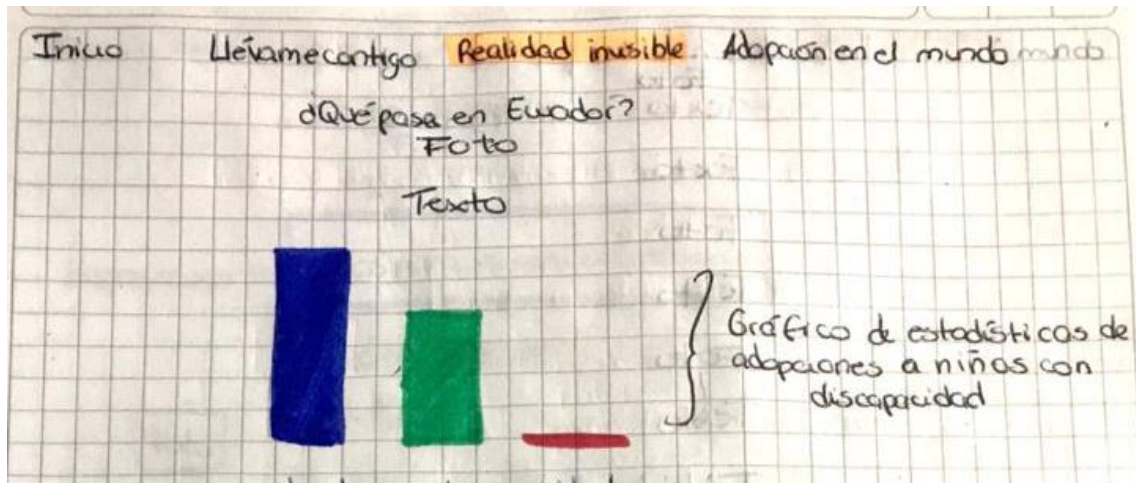 Inicio Llévame contigo Realidad invisible Adopción en el mundo
¿Qué pasa en Ecuador?
Foto
Texto
Gráfico de estadísticas de
adopciones a niños con
discapacidad